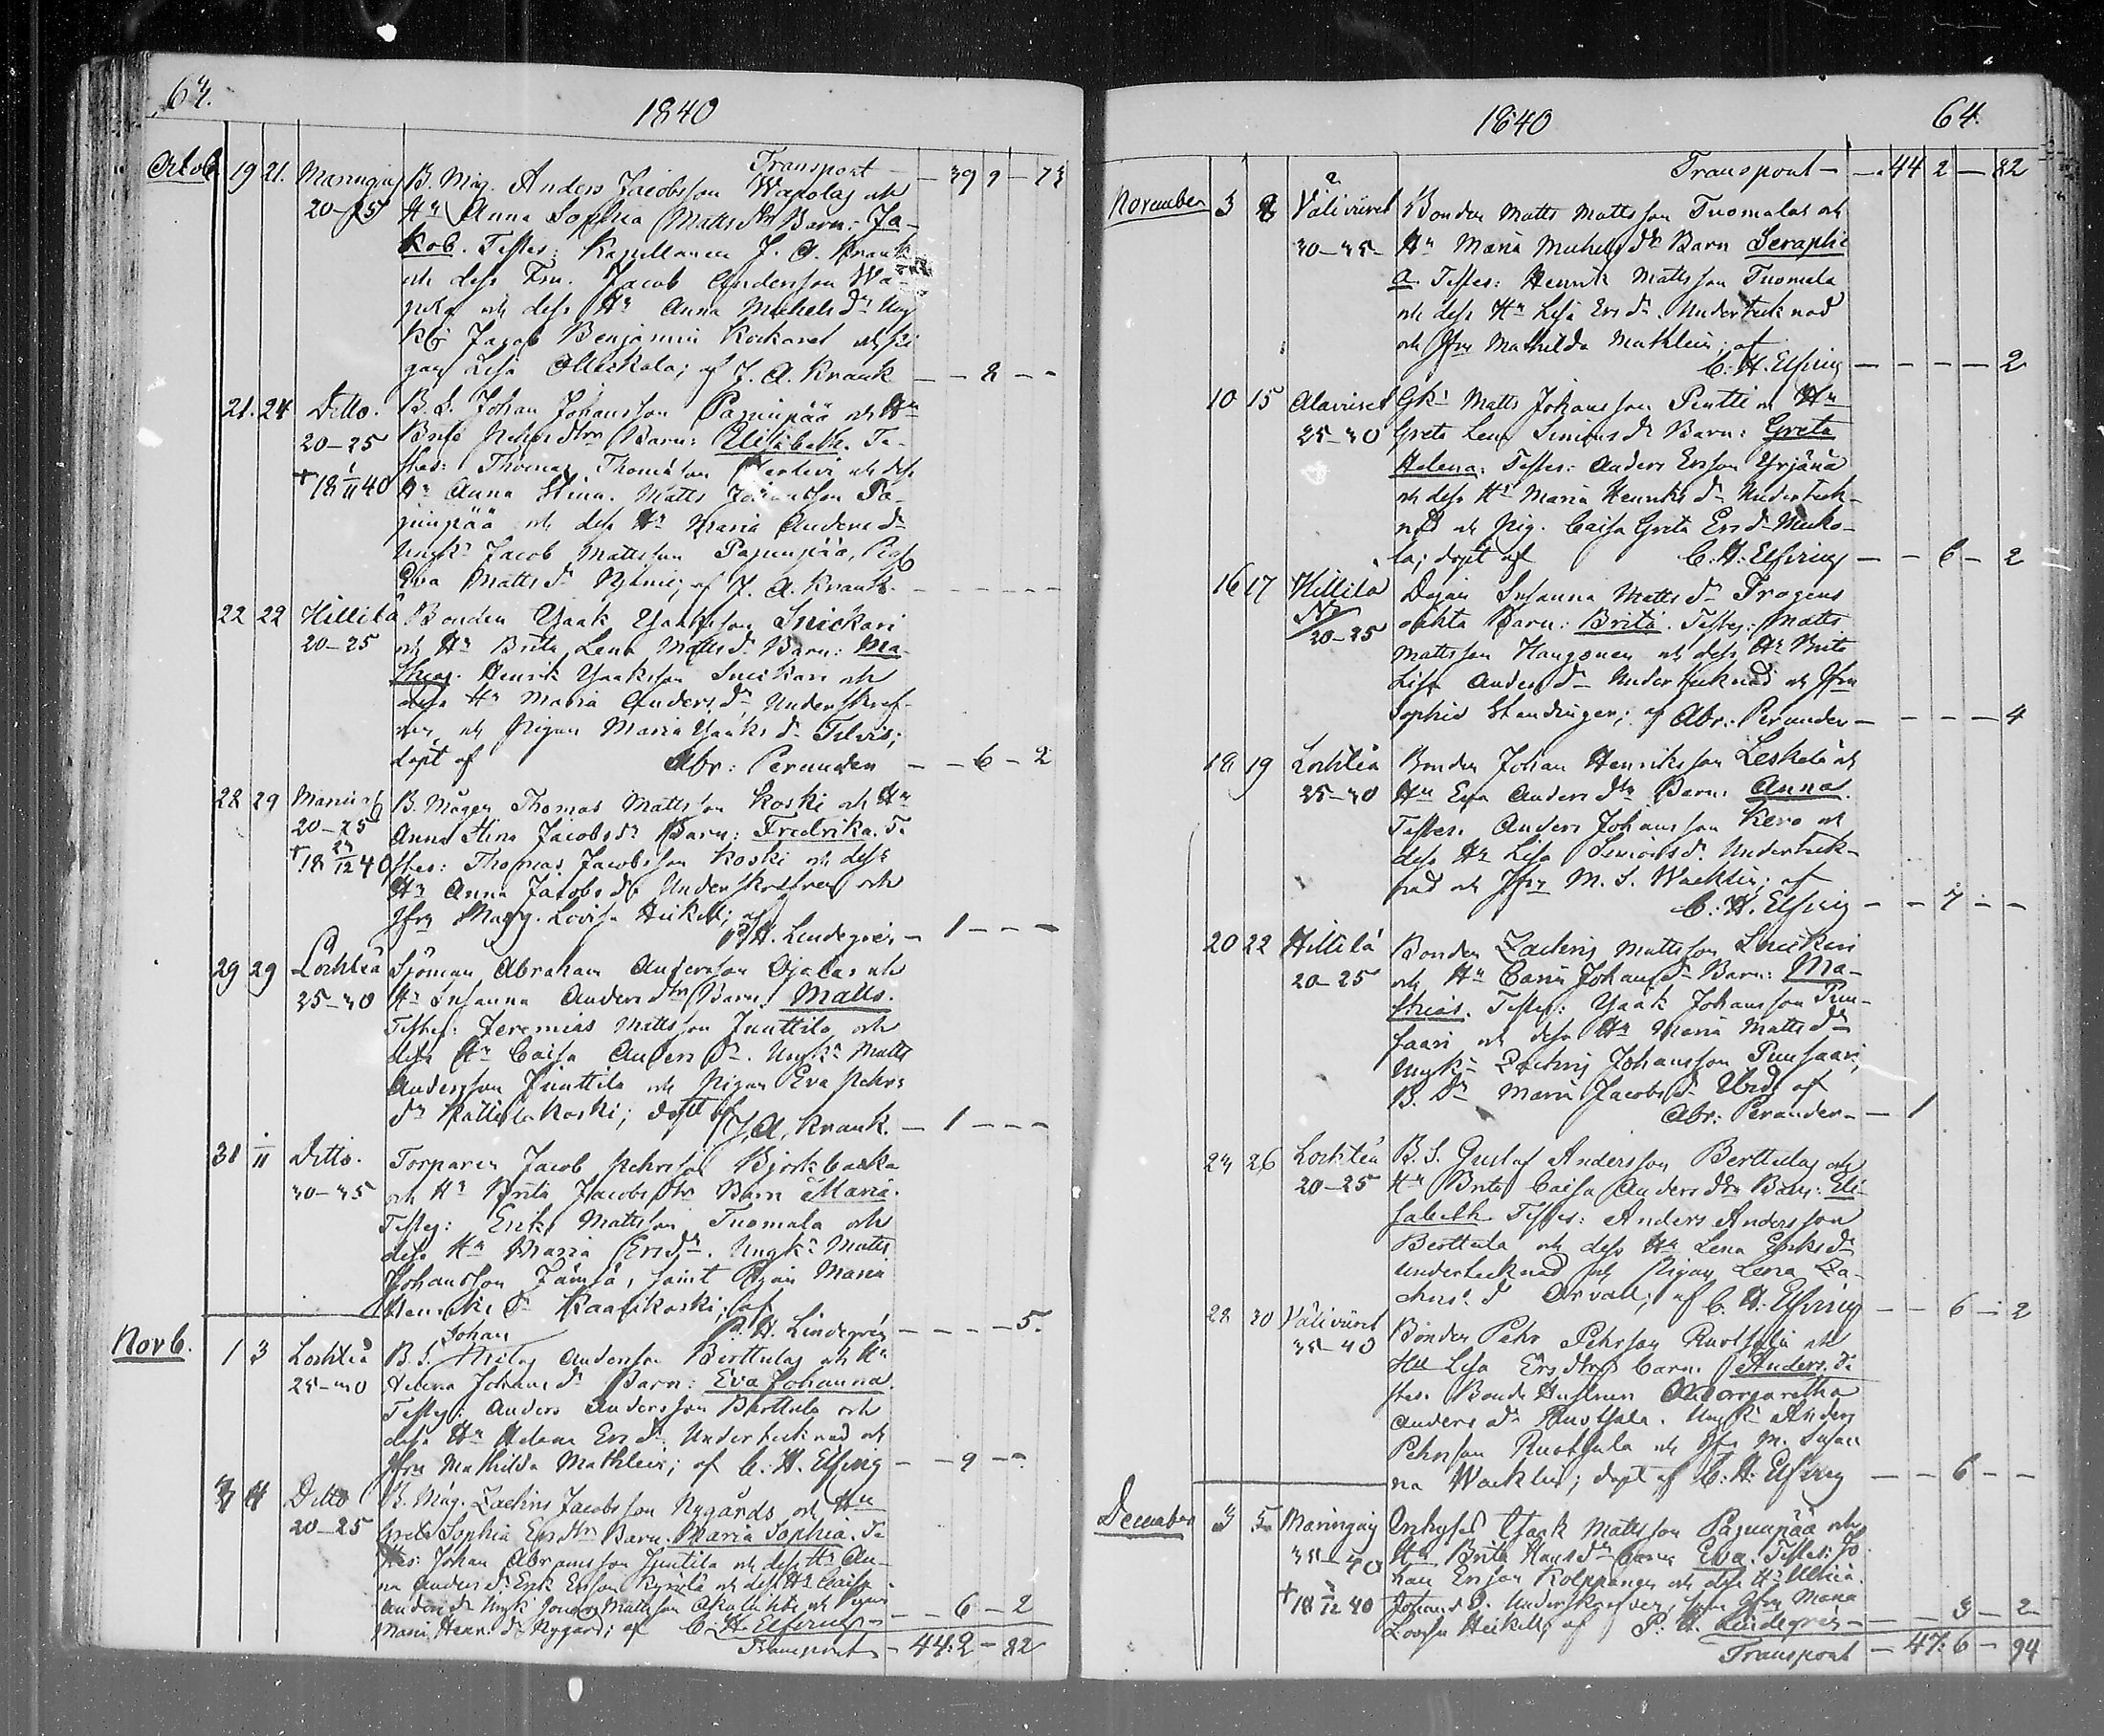 64.
1840
Transport — 39 9 — 73
Octob. 19 21. Maringais B. Måg. Anders Jacobsson Wapolas och
20–25 Hu Anna Sophia Mattsdr Barn: Ja-
kob. Testes: Kapellanen J. A. Krank
och dess Fru. Jacob Andersson Wa-
pola och dess Hu Anna Michelsdr Ung
Benjamin
Lisa Ollickala; af J. A. Krank — — 2 — —
21. 24 Ditto. B. S. Johan Johansson Pajunpää och Hu
20–25 Brita Pehrsdtr Barn: Elisabeth. Te-
+ 18 1/11 40 stes: Thomas Thomasson och dess
Hu Anna Stina. Matts Johansson Pa-
junpää och dess Hu Maria Andersdr
Ungk: Jacob Mattsson Pajunpää, Pig:
Eva Mattsdr af J. A. Krank. — — — — —
22 22 Hillilä Bonden Isaak Isaksson Snickari
20–25 och Hu Brita Lena Mattsdr Barn: Ma-
thias. Henrik Isaksson Snickari och
dess Hu Maria Andersdr, Underskref-
ven, och Pigan Maria Isaksdr Tilvis;
döpt af Abr: Perander — — 6 — 2
28 29 Maringais B. Mågen Thomas Mattsson Koski och Hu
20–25 Anna Stina Jacobsdr Barn: Fredrika. Te
+ 18 /12 40 stes: Thomas Jacobsson Koski och dess
Hu Anna Jacobsdr Underskrefven och
Jfru Marg. Lovisa Heikell; af
P. H. Lindegrén — 1 — — —
29 29 Lochteå Sjöman Abraham Andersson Ojalas och
25–30 Hu Susanna Andersdtr Barn Matts.
Testes: Jeremias Mattsson Junttila och
dess Hu Caisa Andersdr. Ungk: Matts
Andersson Junttila och Pigan Eva Pehrs
dr Kattilakoski; döpt af
J. A. Krank. — 1 — — —
31 1/11 Ditto. Torparen Jacob Pehrsson Björkbacka
30–35 och Hu Brita Jacobsdtr Barn Maria.
Testes: Erik Mattsson Tuomala och
dess Hu Maria Ersdr. Ungk: Matts
Johansson Jämsä, samt Pigan Maria
Henriksdr Kaarikoski; af
P. H. Lindegrén — — — — 5.
Novb. 1 3 Lochteå B. S. Johan Andersson Berttulas och Hu
25–30 Helena Johansdr Barn: Eva Johanna.
Testes: Anders Andersson Berttula och
dess Hu Helena Ersdr Undertecknad och
Jfru Mathilda Mathlein; af C. H. Elfving — — 9 — —
3 4 Ditto B. Måg. Zachris Jacobsson Nygårds och Hu
20–25 Greta Sophia Ersdtr Barn. Maria Sophia. Te
stes: Johan Abramsson Junttila och dess Hu An-
na Andersdr Erik Ersson Kyrölä och dess Hu Caisa
Andersdr Ungk: Johan Mattsson och Pigan
Maria Henr.dr Nygård; af C. H. Elfving — — 6 — 2
Transport — 44. 2 — 82
1840
64.
Transport — — 44 2 — 82
November 3 8 Väliviiret Bonden Matts Mattsson Tuomalas och
30–35 Hu Maria Michelsdr Barn Seraphi
a. Testes: Henrik Mattsson Tuomala
och dess Hu Lisa Ersdr. Undertecknad
och Jfru Mathilda Mathlein; af
C. H. Elfving — — — — 2
10 15 Alaviiret Gk: Matts Johansson Pentti och Hu
25–30 Greta Lena Simonsdr Barn: Greta
Helena. Testes: Anders Ersson Yrjänä
och dess Hu Maria Henriksdr Underteck-
nad och Pig. Caisa Greta Ersdr
la; döpt af C. H. Elfving — — 6 — 2
16 17 Hillilä Pigan Susanna Mattsdr Trogens
20–25 oäkta Barn: Brita. Testes: Matts
Mattsson Haugonen och dess Hu Brita
Lisa Andersdr Undertecknad och Jfru
Sophia Standinger; af Abr: Perander — — — — 4
18 19 Lochteå Bonden Johan Henriksson Leskelä och
25–30 Hu Eva Andersdtr Barn: Anna.
Testes. Anders Johansson Kero och
dess Hu Lisa Simonsdr. Underteck-
nad och Jfru M. S. Wacklin; af
C. H. Elfving — — 7 — —
20 22 Hillilä Bonden Zachris Mattsson Snickari
20–25 och Hu Carin Johansdr Barn: Ma-
thias. Testes: Isaak Johansson Puu-
saari och dess Hu Maria Mattsdr
Ungk: Zachris Johansson Puusaari;
B. Dr Maria Jacobsdr af
Abr: Perander — — 1
24 26 Lochteå B. S. Gustaf Andersson Berttulas och
20–25 Hu Brita Caisa Andersdtr Barn: Eli-
sabeth. Testes: Anders Andersson
Berttula och dess Hu Lena Eriksdr
undertecknad och Pigan Lena Za-
chris.dr Orvall; af C. H. Elfving — — 6 — 2
28 30 Väliviiret Bonden Pehr Pehrsson Ruotsala och
35–40 Hu Lisa Ersdtrs barn. Anders. Te
stes. Bonde Hustrun Margaretha
Andersdr Ruotsala. Ungk: Anders
Pehrsson Ruotsala och Jfru M. Susan
na Wacklin; döpt af C. H. Elfving — — 6 — —
December 3 5 Maringais Inhyses Isaak Mattsson Pajunpää och
35–40 Hu Brita Hansdr barn Eva. Testes: Jo
+ 18 /12 40 han Ersson Kolppanen och dess Hu Ulrica
Johansd. Underskrefven, samt Jfru Maria
Lovisa Heikell; af P. H. Lindegrén — — 3 — 2
Transport — 47. 6 — 94